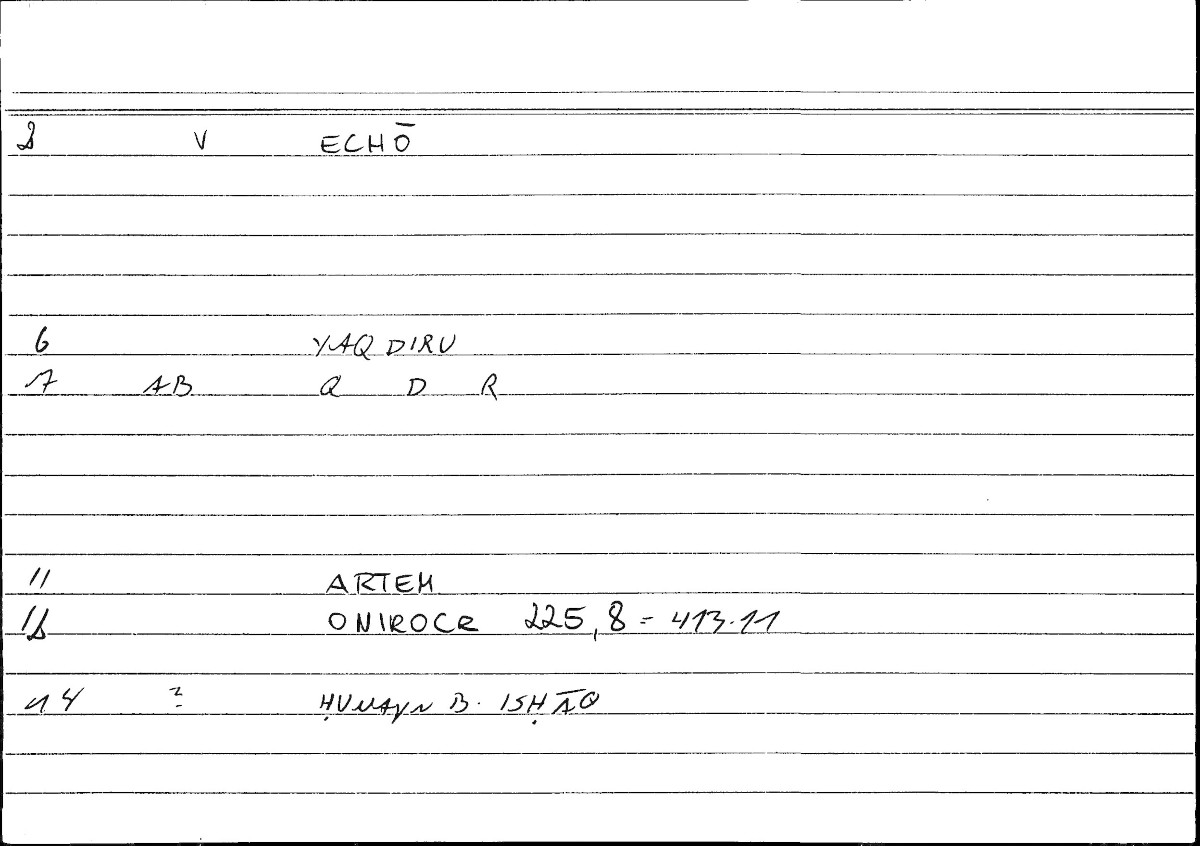 2 V ECHŌ
6 YAQDIRU
7 AB Q D R
11 ARTEM
12 ONIROCR 225,8 = 413.11
14 ḤUNAYN B. ISḤĀQ